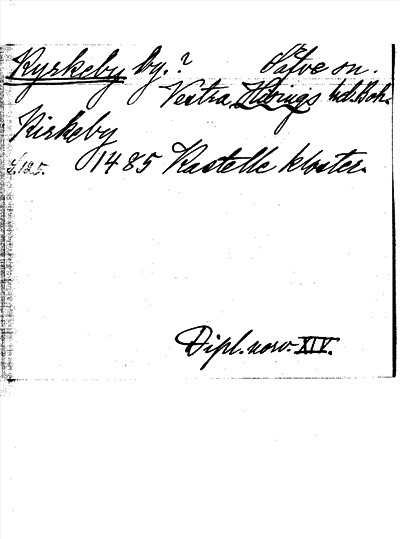 Kyrkeby by.? Säfve sn.
Vestra Hisings hd. Boh.
Kirkeby
S. 125. 1485 Kastelle kloster.
Dipl. norv. XIV.